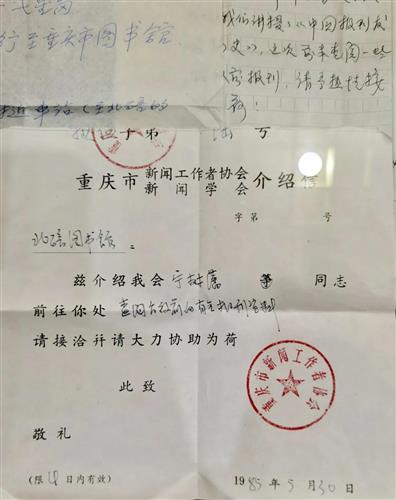 行至重庆市图书馆
我们讲授《中国报刊
史》，这次前来查阅一些
旧报刊，请予热忱接
重庆市新闻工作者协会
新闻学会介绍信
字第 号
北碚图书馆：
兹介绍我会宁树藩 等 同志
前往你处查阅解放前的有关报刊资料
请接洽并请大力协助为荷
重庆市新闻工作者协会
此致
敬礼
(限 日内有效)
1985年5月30日